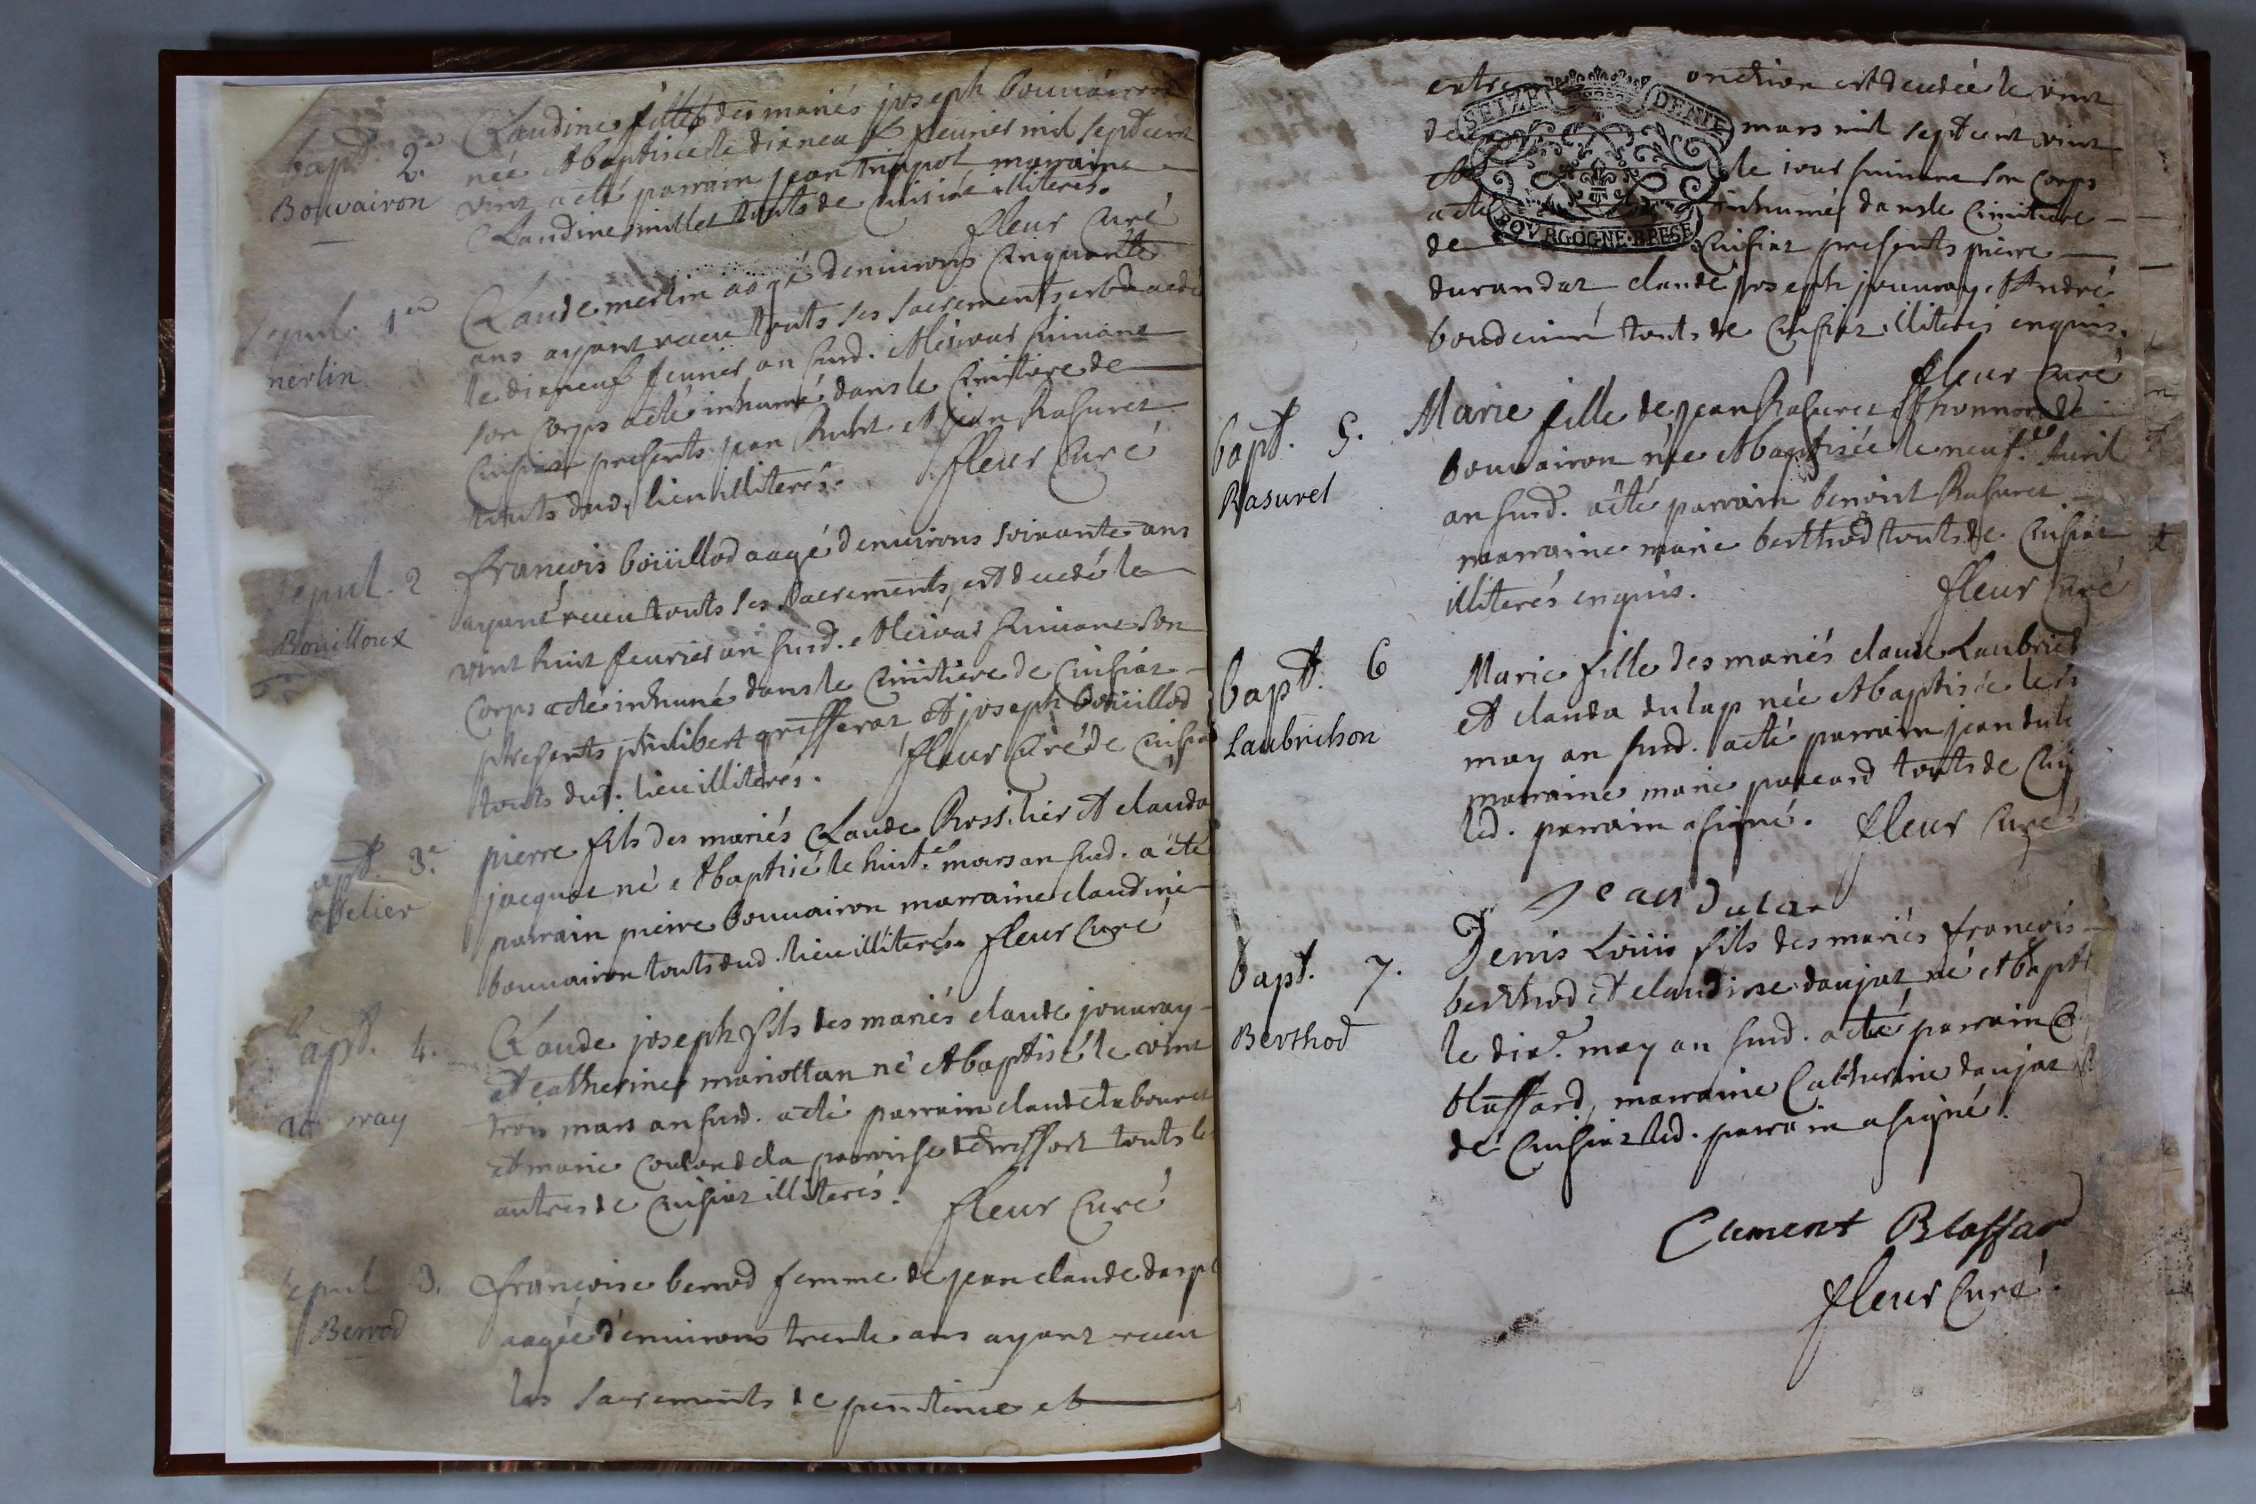 bapt. 2.e
Bouvairon
Claudine fille des mariés joseph bouuairon
née et baptisée le dixneuf feurier mil septcent
vint a été parrain jean tripoz marraine
Claudine millet touts de illiterés.
fleur Curé
sepul. 1er
merlin
Claude merlin aagé denuirons Cinquante
ans ayant receu touts ses sacrements est decedé
le dixneuf feurier an susd. et le iour suiuant
son Corps a été inhumé dans le Cimitiere de
Cuisiat presents jean et jean Rasurel
touts dud. lieu illiterés. fleur Curé
sepul. 2
Bouilloux
francois boüillod aagé denuirons soixante ans
ayant receu touts ses sacrements, est decedé le
vint huit feurier an susd. et le iour suiuant son
Corps a été inhumé dans le Cimitiere de Cuisiat
presents philibert grifferat et joseph boüillod
touts dud. lieu illiterés. fleur Curé de Cuisiat
apt. 3.e
sselier
pierre fils des mariés Claude Rosselier et clauda
jacquet né et baptisé le huit.e mars an susd. a été
parrain pierre bouuairon marraine claudine
bouuairon touts dud. lieu illiterés. fleur Curé
bapt. 4.
ray
Claude joseph fils des mariés claude jouuray
et catherine mariottan né et baptisé le vint
trois mars an susd. a été parrain claude tabouret
et marie de la parroisse de treffort touts les
autres de Cuisiat illiterés. fleur Curé
sepul 3.
Berrod
francoise berrod femme de jean claude
aagée d'enuirons trente ans ayant receu
les sacrements de penitence et
entreme onction est decedée le vint
deux mars mil septcent vint
et le iour suiuant son corps
a été inhumé dans le Cimitiere
de Cuisiat presents pierre
durandat claude joseph jouuray et André
touts de Cuisiat illiterés enquis.
fleur Curé
SEIZE DENIE
BOVRGOGNE·BRESE
bapt. 5.
Rasurel
Marie fille de jean Rasurel et
bouuairon née et baptisée le neuf.e Auril
an susd. a été parrain benoist Rasurel
marraine marie berthod touts de Cuisiat
illiterés enquis. fleur Curé
bapt. 6
Laubrichon
Marie fille des mariés claude Laubrich
et clauda dulap née et baptisée le
may an susd. a été parrain jean dula
marraine marie touts de Cui
led. parrain a signé. fleur Curé
Jean Dulax
bapt. 7.
Berthod
Denis Loüis fils des mariés francois
berthod et claudine daujat né et bapt
le dix.e may an susd. a été parrain C
blaffard, marraine Catherine daujat
de Cuisiat led. parrain a signé.
Clement Blaffard
fleur Curé.